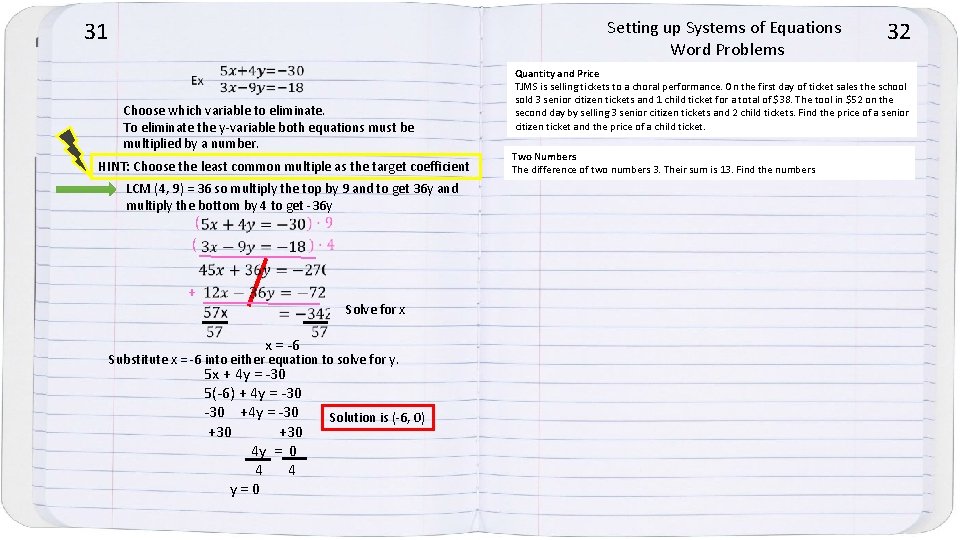 31
Ex 5x+4y=−30
3x−9y=−18
Choose which variable to eliminate.
To eliminate the y-variable both equations must be
multiplied by a number.
HINT: Choose the least common multiple as the target coefficient
LCM (4, 9) = 36 so multiply the top by 9 and to get 36y and
multiply the bottom by 4 to get -36y
(5x + 4y = −30 ) · 9
( 3x − 9y = −18 ) · 4
45x + 36y = −270
+ 12x − 36y = −72
57x = −342 Solve for x
57 57
x = -6
Substitute x = -6 into either equation to solve for y.
5x + 4y = -30
5(-6) + 4y = -30
-30 +4y = -30
+30 +30
4y = 0
4 4
y = 0
Solution is (-6, 0)
Setting up Systems of Equations
Word Problems
32
Quantity and Price
TJMS is selling tickets to a choral performance. On the first day of ticket sales the school
sold 3 senior citizen tickets and 1 child ticket for a total of $38. The tool in $52 on the
second day by selling 3 senior citizen tickets and 2 child tickets. Find the price of a senior
citizen ticket and the price of a child ticket.
Two Numbers
The difference of two numbers 3. Their sum is 13. Find the numbers